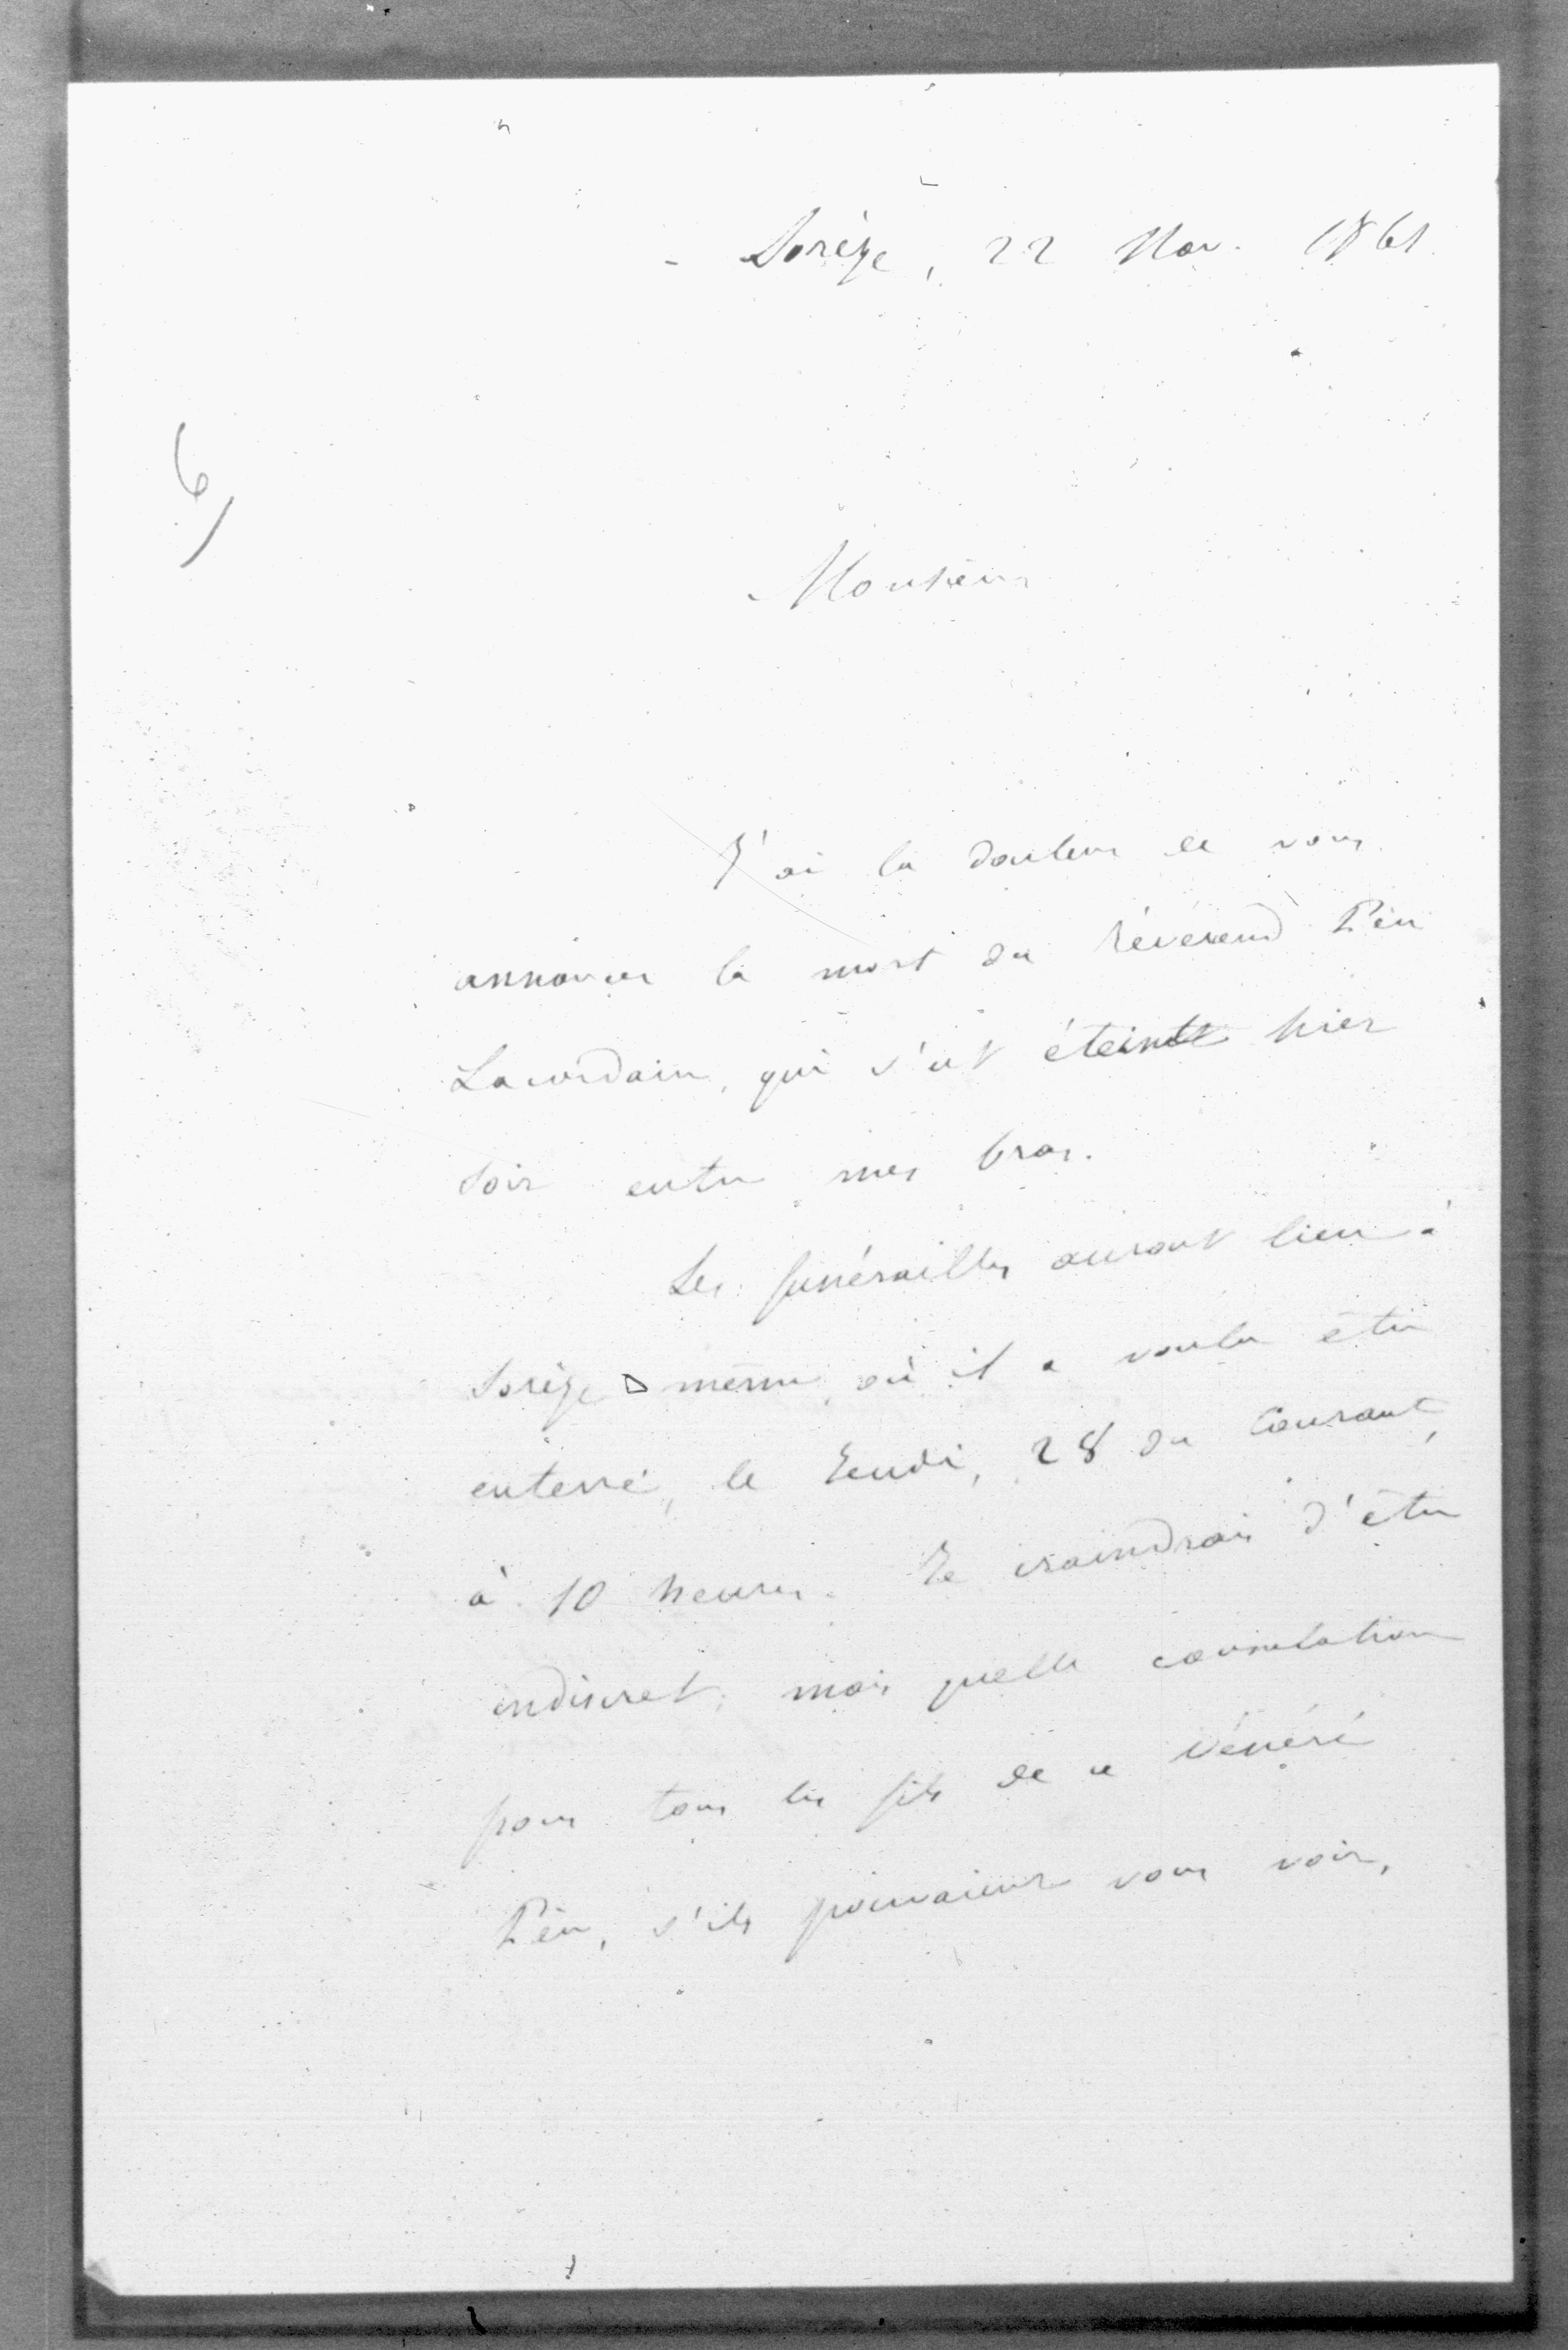 - Sorèze, 22 Nov. 1861.
6/
Monsieur
J'ai la douleur de vous
annoncer la mort du Révérend Père
Lacordaire, qui s'est éteint hier
soir entre mes bras.
Les funérailles auront lieu à
Sorèze même, où il a voulu être
enterré, le Jeudi, 28 du Courant,
à 10 heures. Je craindrais d'être
indiscret; mais quelle consolation
pour tous les fils de ce Vénéré
Père, s'ils pouvaient vous voir,